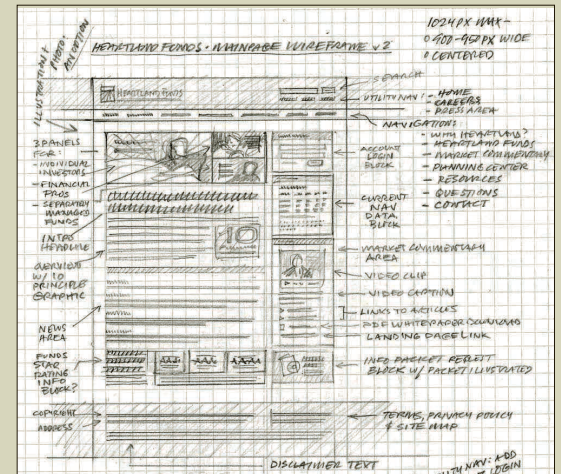 1024PX MAX -
900-950 PX WIDE
CENTERED
ILLUSTRATION &
PHOTO:
AN OPTION
HEARTLAND FUNDS - MAINPAGE WIREFRAME v2
HEARTLAND FUNDS
SEARCH
UTILITY NAV:
- HOME
- CAREERS
- PRESS AREA
NAVIGATION:
- WHY HEARTLAND?
- HEARTLAND FUNDS
- MARKET COMMENTARY
- PLANNING CENTER
- RESOURCES
- QUESTIONS
- CONTACT
3 PANELS
FOR:
- INDIVIDUAL
INVESTORS
- FINANCIAL
PROS
- SEPARATELY
MANAGED
FUNDS
INTRO
HEADLINE
OVERVIEW
W/ 10
PRINCIPLE
GRAPHIC
10
NEWS
AREA
FUNDS
STAR
RATING
INFO
BLOCK?
COPYRIGHT
ADDRESS
ACCOUNT
LOGIN
BLOCK
CURRENT
NAV
DATA
BLOCK
MARKET COMMENTARY
AREA
VIDEO CLIP
VIDEO CAPTION
LINKS TO ARTICLES
PDF WHITEPAPER DOWNLOAD
LANDING PAGE LINK
INFO PACKET
BLOCK W/ PACKET ILLUSTRATED
TERMS, PRIVACY POLICY
& SITE MAP
DISCLAIMER TEXT
UTILITY NAV: ADD
LOGIN